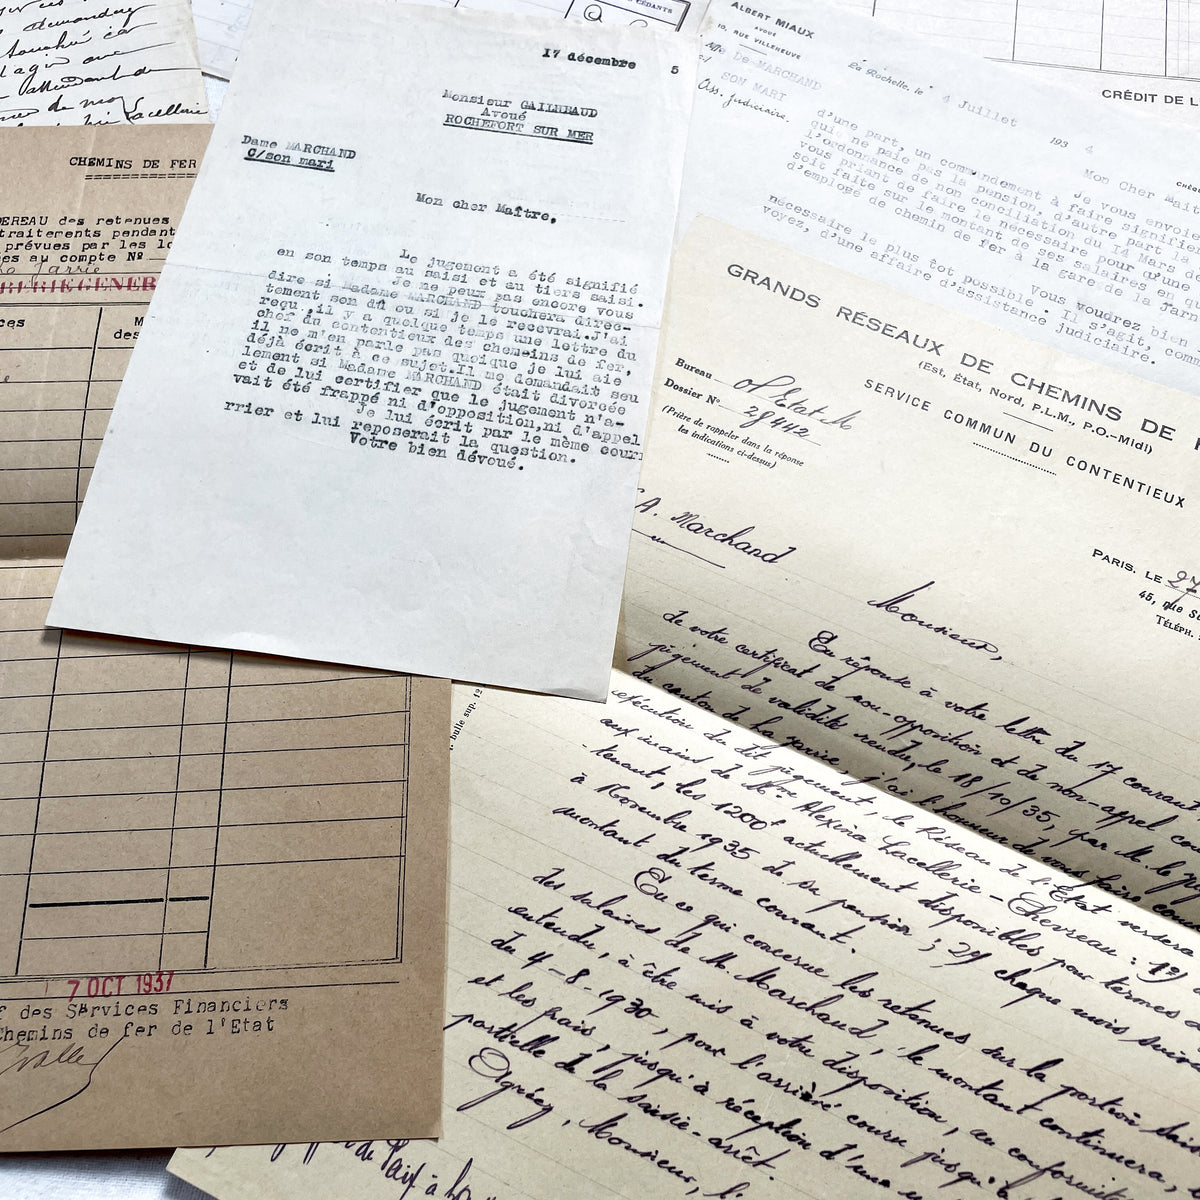 demander
17 décembre 5
Monsieur GAILREAUD
Avoué
ROCHEFORT SUR MER
Dame MARCHAND
C/son mari
Mon cher Maître,
Le jugement a été signifié
en son temps au saisi et au tiers saisi.
Je ne peux pas encore vous
dire si Madame MARCHAND touchera direc-
tement son dû ou si je le recevrai. J'ai
reçu, il y a quelque temps une lettre du
chef du contentieux des chemins de fer,
il ne m'en parle pas quoique je lui aie
déjà écrit à ce sujet. Il me demandait seu
lement si Madame MARCHAND était divorcée
et de lui certifier que le jugement n'a-
vait été frappé ni d'opposition, ni d'appel
Je lui écrit par le même cour
rrier et lui reposerait la question.
Votre bien dévoué.
ALBERT MIAUX
AVOUÉ
10, RUE VILLENEUVE
La Rochelle, le 4 Juillet 193 4
De MARCHAND
SON MARI
Ass. judiciaire.
Mon Cher Maît
Je vous envoie
d'une part, un commandement à faire signifier
qui ne paie pas la pension, d'autre part la
l'ordonnance de non conciliation du 14 Mars
vous priant de faire le nécessaire pour qu'une
soit faite sur le montant de ses salaires en q
d'employé de chemin de fer à la gare de la Jarn
Vous voudrez bien
nécessaire le plus tôt possible. Il s'agit, com
voyez, d'une affaire d'assistance judiciaire.
CRÉDIT DE L
CHEMINS DE FER
EREAU des retenues
traitements pendant
prévues par les lo
es au compte Nº
La Jarrie
RERIE GENER
ces
M
des
7 OCT 1937
f des Services Financiers
Chemins de fer de l'Etat
GRANDS RÉSEAUX DE CHEMINS DE F
(Est, État, Nord, P.L.M., P.O.-Midi)
SERVICE COMMUN DU CONTENTIEUX
Bureau
Dossier Nº 28442
(Prière de rappeler dans la réponse
les indications ci-dessus)
PARIS, LE 27
45, rue S
TÉLÉPH.
A. Marchand
Monsieur,
En réponse à votre lettre du 17 courant
de votre certificat de non-opposition et de non-appel co
jugement de validité rendu, le 18/10/35, par M. le
du canton de La Jarrie, j'ai l'honneur de vous faire
exécution du dit jugement, le Réseau de l'Etat versera
aux mains de Mme Alexina Lacellerie-Chevreau : 1º)
tenant, les 1200f actuellement disponibles pour termes
à Novembre 1935 de sa pension ; 2º) chaque mois suiv
montant du terme courant.
En ce qui concerne les retenues sur la portion sais
des salaires de M. Marchand, le montant continuera,
entendu, à être mis à votre disposition, en conformit
du 4-8-1930, pour l'arriéré couru jusqu'à
et les frais, jusqu'à réception d'une
partielle de la saisie-arrêt.
Agréez, Monsieur, l'
bulle sup. 12